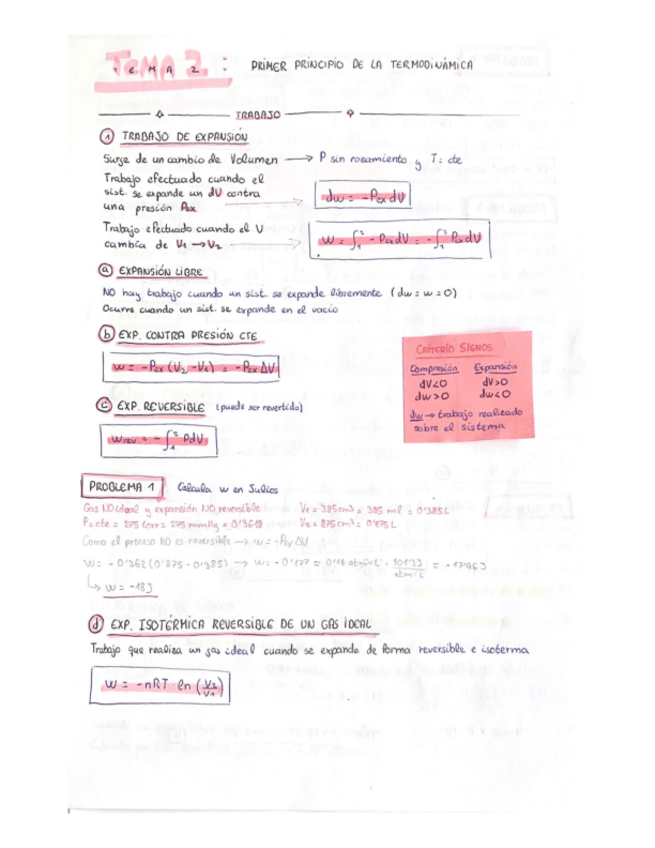 TEMA 2:
TEMA
PRIMER PRINCIPIO DE LA TERMODINÁMICA
TRABAJO
1 TRABAJO DE EXPANSIÓN
Surge de un cambio de Volumen → P sin rozamiento y T: cte
Trabajo efectuado cuando el
sist. se expande un dV contra
una presión Pex → dw = -Pex dV
Trabajo efectuado cuando el V
cambia de V1 → V2 → W = ∫₁² -Pex dV = -∫₁² Pex dV
a EXPANSIÓN LIBRE
NO hay trabajo cuando un sist. se expande libremente (dw = w = 0)
Ocurre cuando un sist. se expande en el vacío
b EXP. CONTRA PRESIÓN CTE
w = -Pex (V2 - V1) = -Pex ΔV
Criterio SIGNOS
Compresión Expansión
dV<0 dV>0
dw>0 dw<0
dw → trabajo realizado
sobre el sistema
c EXP. REVERSIBLE (puede ser revertido)
Wrev = -∫₁² PdV
PROBLEMA 1 Calcula w en Julios
Gas NO ideal y expansión NO reversible V1 = 385cm3 = 385 ml = 0'385L
P=cte = 275 torr = 275 mmHg = 0'3618 V2 = 875cm3 = 0'875L
Como el proceso NO es reversible → w = -PΔV
W = -0'362(0'875-0'385) → w = -0'177 = 0'18 atm·L · 101'33 J / atm·L = -17'96J
↳ w = -18J
d EXP. ISOTÉRMICA REVERSIBLE DE UN GAS IDEAL
Trabajo que realiza un gas ideal cuando se expande de forma reversible e isoterma
W = -nRT · ln (V2/V1)